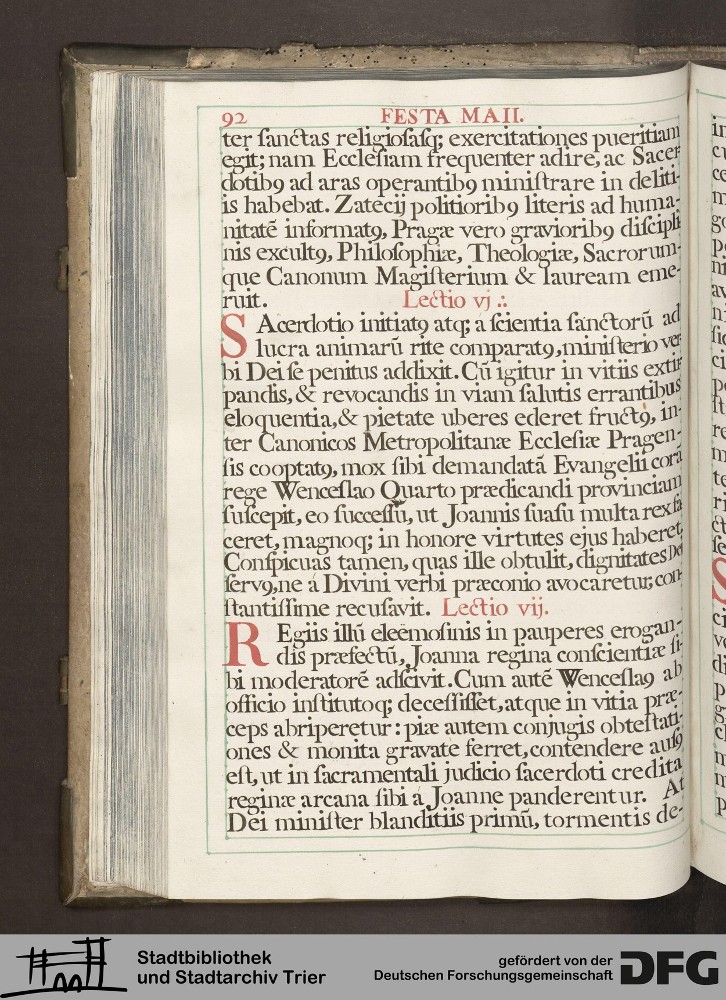 92 FESTA MAII.
ter ſanctas religioſaſq; exercitationes pueritiam
egit; nam Eccleſiam frequenter adire, ac Sacer-
dotibꝯ ad aras operantibꝯ miniſtrare in deliti-
is habebat. Zatecij politioribꝯ literis ad huma-
nitatē informatꝯ, Pragæ vero gravioribꝯ diſcipli
nis excultꝯ, Philoſophiæ, Theologiæ, Sacrorum-
que Canonum Magiſterium & lauream eme-
ruit. Lectio vj ∴
SAcerdotio initiatꝯ atq; á ſcientia ſanctorū ad
lucra animarū rite comparatꝯ, miniſterio ver-
bi Dei ſe penitus addixit. Cū igitur in vitiis extir
pandis, & revocandis in viam ſalutis errantibus
eloquentia, & pietate uberes ederet fructꝯ, in-
ter Canonicos Metropolitanæ Eccleſiæ Pragen-
ſis cooptatꝯ, mox ſibi demandatā Evangelii corā
rege Wenceſlao Quarto prædicandi provinciam
ſuſcepit, eo ſucceſſū, ut Joannis ſuaſu multa rex fa
ceret, magnoq; in honore virtutes ejus haberet.
Conſpicuas tamen, quas ille obtulit, dignitates Dei
ſervꝯ, ne á Divini verbi præconio avocaretur, con-
ſtantiſſime recuſavit. Lectio vij.
REgiis illū eleëmoſinis in pauperes erogan-
dis præfectū, Joanna regina conſcientiæ ſi-
bi moderatorē adſcivit. Cum autē Wenceſlaꝯ ab
officio inſtitutoq; deceſſiſſet, atque in vitia præ-
ceps abriperetur: piæ autem conjugis obteſtati-
ones & monita gravate ferret, contendere auſꝯ
eſt, ut in ſacramentali judicio ſacerdoti credita
reginæ arcana ſibi á Joanne panderentur. At
Dei miniſter blanditiis primū, tormentis de-
Stadtbibliothek
und Stadtarchiv Trier
gefördert von der
Deutschen Forschungsgemeinschaft
DFG